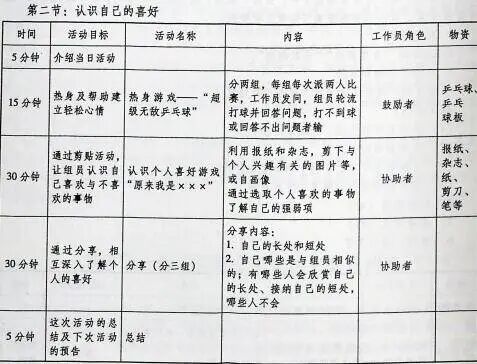 第二节：认识自己的喜好
时间 活动目标 活动名称 内容 工作员角色 物资
5分钟 介绍当日活动
15分钟
热身及帮助建
立轻松心情
热身游戏——“超
级无敌乒乓球”
分两组，每组每次派两人比
赛，工作员发问，组员轮流
打球并回答问题，打不到球
或回答不出问题者输
鼓励者
乒乓球、
乒乓
球板
30分钟
通过剪贴活动，
让组员认识自
己喜欢与不喜
欢的事物
认识个人喜好游戏
“原来我是×××”
利用报纸和杂志，剪下与
个人兴趣有关的图片等，
或自画像
通过选取个人喜欢的事物
了解自己的强弱项
协助者
报纸、
杂志、
纸、
剪刀、
笔等
30分钟
通过分享，相
互深入了解个
人的喜好
分享（分三组）
分享内容：
1. 自己的长处和短处
2. 自己哪些是与组员相似
的；有哪些人会欣赏自己
的长处、接纳自己的短处，
哪些人不会
协助者
5分钟
这次活动的总
结及下次活动
的预告
总结